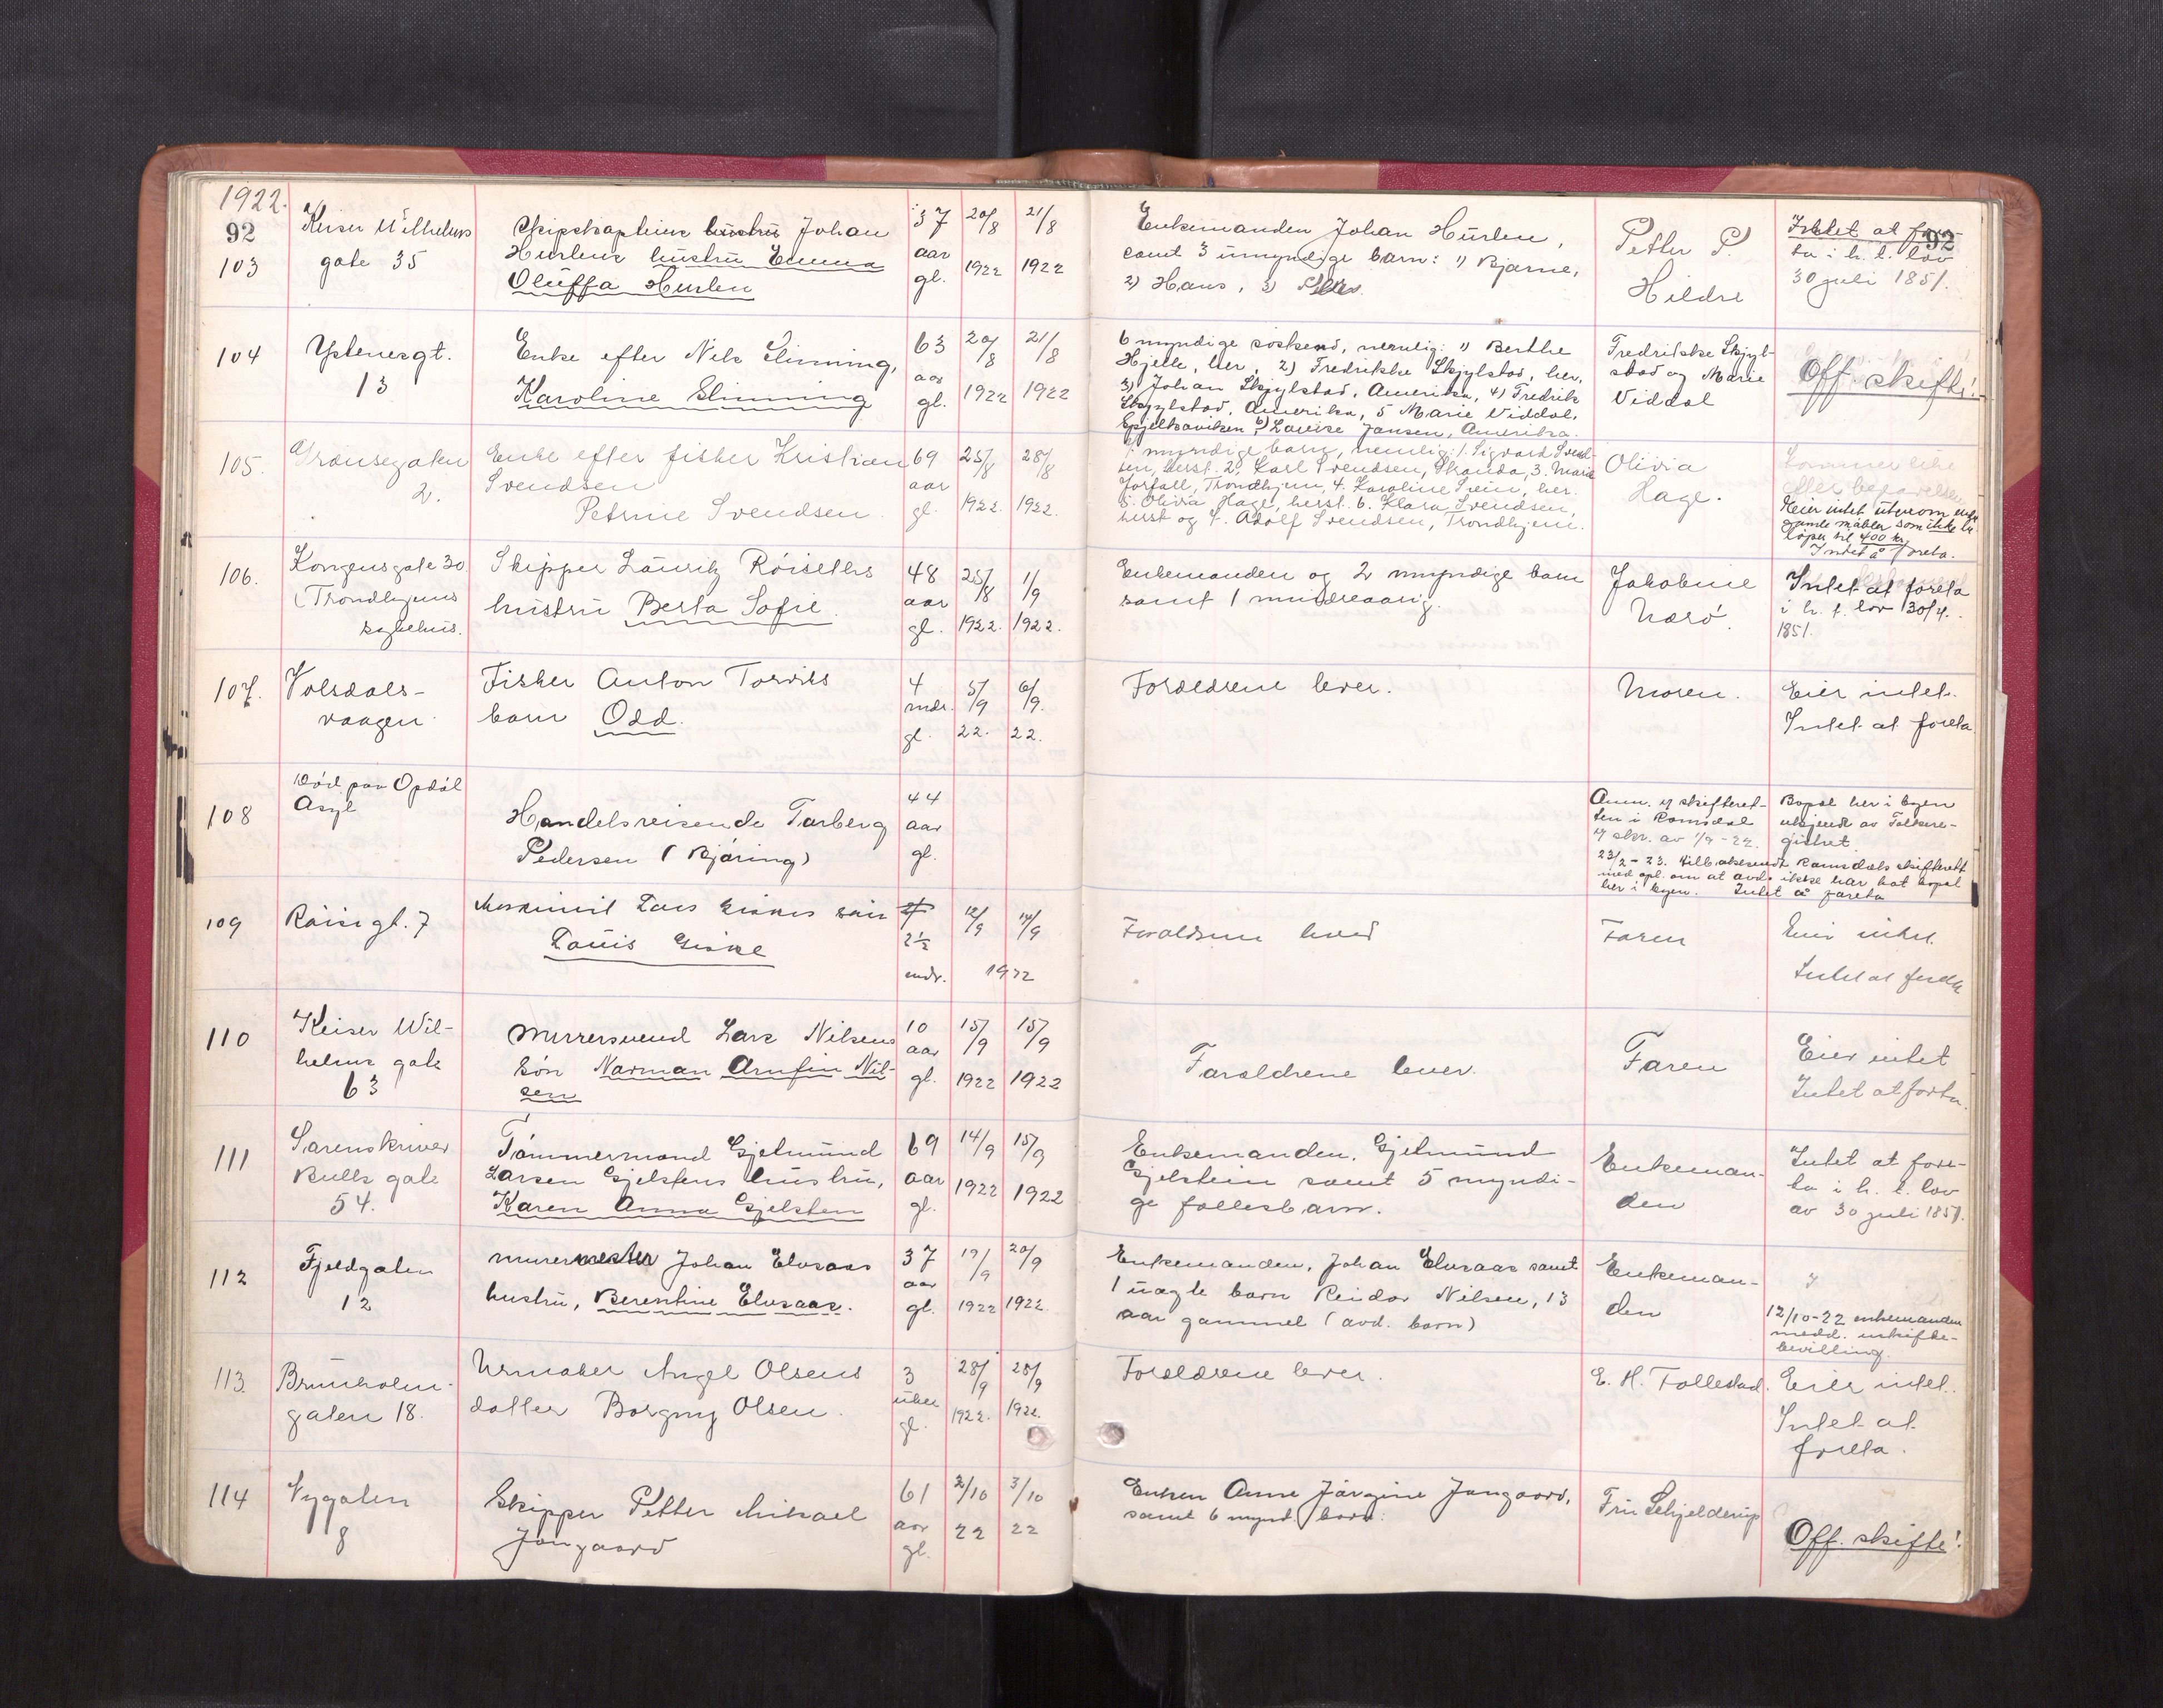 1922.
92
92
103
Keiser Wilhelms
gate 35
Skipskaptein hustru Johan
Hurlens hustru Emma
Oluffa Hurlen
37
aar
gl.
20/8
1922
21/8
1922
Enkemanden Johan Hurlen,
samt 3 umyndige barn: 1) Bjarne,
2) Hans, 3)
Petter P.
Hildre
Intet at fore-
ta i h. t. lov
30 juli 1851.
104
Ystenesgt.
13
Enke efter Nils Slinning,
Karoline Slinning
63
aar
gl.
20/8
1922
21/8
1922
6 myndige søskend, nemlig: 1) Berthe
Hjelle, her, 2) Fredrikke Skjylstad, her,
3) Johan Skjylstad, Amerika, 4) Fredrik
Skjylstad, Amerika, 5 Marie Viddal,
Spjelkaviken, 6) Lovise Jansen, Amerika.
Fredrikke Skjyl-
stad og Marie
Viddal
Off. skifte!
105.
Grænsegaten
2.
Enke efter fisker Kristian
Svendsen
Petrine Svendsen.
69
aar
gl.
25/8
1922.
28/8
1922.
7 myndige barn, nemlig: 1. Sigvard Svend-
sen, herst. 2. Karl Svendsen, Stranda, 3. Marie
Forfall, Trondhjem, 4. Karoline Svein, her.
5. Olivia Hage, herst. 6. Klara Svendsen,
herst og 7. Adolf Svendsen, Trondhjem.
Olivia
Hage.
Kommer like
efter begravelsen
Eier intet utenom endel
gamle møbler som ikke be-
løper til 400 kr.
Intet å foreta.
106.
Kongensgate 30
(Trondhjems
sykehus.
Skipper Lauritz Röiseths
hustru Berta Sofie.
48
aar
gl.
25/8
1922.
1/9
1922.
Enkemanden og 2 myndige barn
samt 1 mindreaarig.
Jakobine
Nærö.
Intet at foreta
i h. t. lov 30/7.
1851.
107.
Volsdals-
vaagen.
Fisker Anton Torviks
barn Odd.
4
mdr.
gl.
5/9
22.
6/9.
22.
Forældrene lever.
Moren.
Eier intet.
Intet at foreta
108
Död paa Opdöl
Asyl
Handelsreisende Torberg
Pedersen (Bjøring)
44
aar
gl.
Anm. af skifteret-
ten i Romsdal
if skr. av 1/9 - 22.
Bopæl her i byen
ukjendt av Folkere-
gistret
23/2 - 23. tilbakesendt Romsdals skifterett
med opl. om at avd. ikke har hat bopæl
her i byen. Intet å foreta
109
Röisegt. 7
Maskinist Lars Giskes søn
Louis Giske
2½
mdr.
12/9
14/9
1922
Forældrene lever
Faren
Eier intet.
Intet at foreta
110
Keiser Wil-
helms gate
63
Murersvend Lars Nilsens
søn Norman Arnfin Nil-
sen
10
aar
gl.
15/9
1922
15/9
1922
Forældrene lever.
Faren
Eier intet
Intet at foreta.
111
Sorenskriver
Bulls gate
54.
Tömmermand Gjelmund
Larsen Gjelstens hustru,
Karen Anna Gjelsten
69
aar
gl.
14/9
1922
15/9
1922
Enkemanden, Gjelmund
Gjelstein samt 5 myndi-
ge fællesbarn.
Enkeman-
den
Intet at fore-
ta i h. t. lov
av 30 juli 1851.
112
Fjeldgaten
12
Murermester Johan Elvsaas
hustru, Berentine Elvsaas.
37
aar
gl.
19/9
1922
20/9
1922
Enkemanden, Johan Elvsaas samt
1 uægte barn Reidar Nilsen, 13
aar gammel (avd. barn)
Enkeman-
den
12/10-22 enkemanden
medd. uskifte-
bevilling.
113.
Brunholm-
gaten 18.
Urmaker Angel Olsens
datter Borgny Olsen.
3
uker
gl.
28/9
1922.
28/9
1922.
Forældrene lever.
E. H. Follestad.
Eier intet.
Intet at
foreta.
114
Nygaten
8
Skipper Petter Mikael
Jangaard
61
aar
gl.
2/10
22
3/10
22
Enken Anne Jørgine Jangaard,
samt 6 mynd. barn.
Fru Schjelderup
Off. skifte!